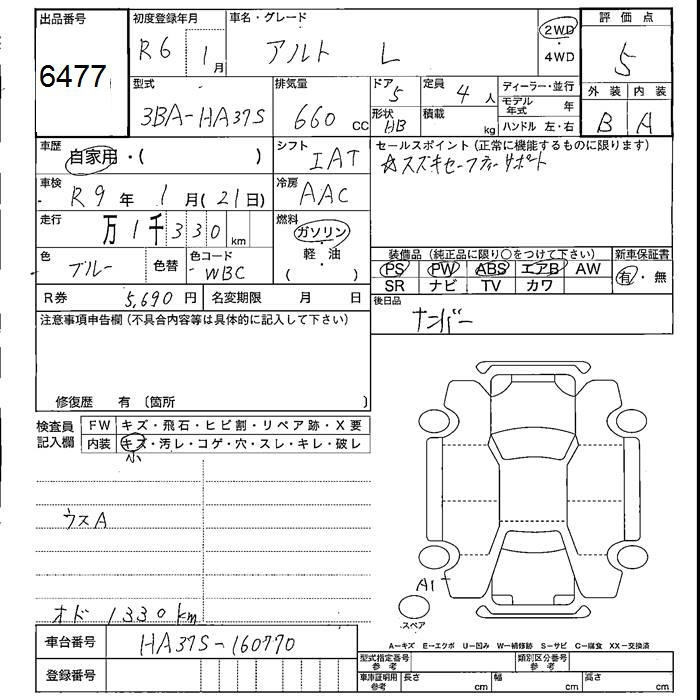 出品番号
6477
初度登録年月
R6 1月
車名・グレード
アルト L
2WD
・
4WD
評価点
5
外装 内装
B A
型式
3BA-HA37S
排気量
660 CC
ドア
5
形状
HB
定員
4人
積載
kg
ディーラー・並行
モデル年式 年
ハンドル 左・右
車歴
自家用・( )
シフト
IAT
セールスポイント(正常に機能するものに限ります)
☆スズキセーフティーサポート
車検
R9年 1月(21日)
冷房
AAC
走行
万1千330km
燃料
ガソリン
・
軽・油
( )
色
ブルー
色替
色コード
WBC
装備品(純正品に限り○をつけて下さい)
PS PW ABS エアB AW
SR ナビ TV カワ
新車保証書
有・無
R券 5,690円
名変期限 月 日
後日品
ナンバー
注意事項申告欄(不具合内容等は具体的に記入して下さい)
修復歴 有〔箇所 〕
検査員
記入欄
FW キズ・飛石・ヒビ割・リペア跡・X要
内装 キズ・汚レ・コゲ・穴・スレ・キレ・破レ
小
ウスA
オド 1330km
A1
スペア
A-キズ E-エクボ U-凹み W-補修跡 S-サビ C-腐食 XX-交換済
車台番号 HA37S-160770
登録番号
型式指定番号
参考
類別区分番号
参考
車庫証明用
参考
長さ cm 幅 cm 高さ cm